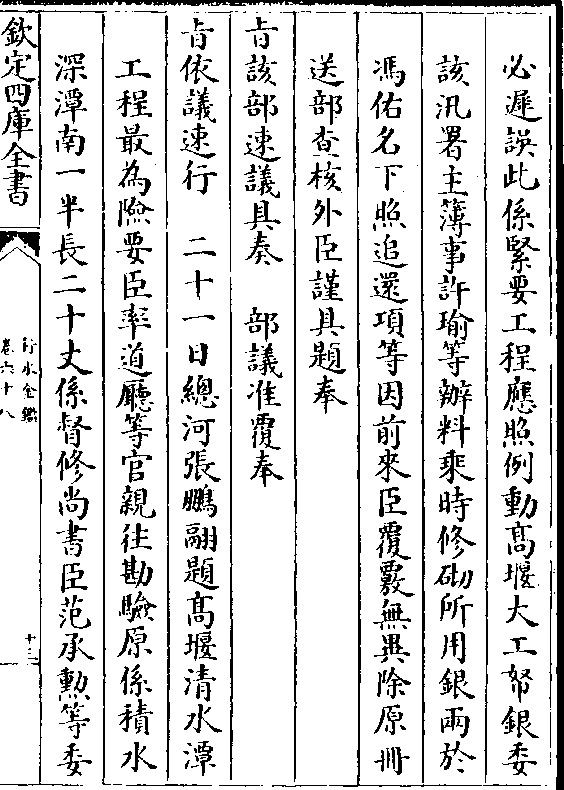 必遲誤此係緊要工程應照例動髙堰大工帑銀委
該汛署主簿事許瑜等辦料乘時修砌所用銀兩於
馮佑名下照追還項等因前來臣覆覈無異除原冊
送部查核外臣謹具題奉
㫖該部速議具奏　部議准覆奉
㫖依議速行　二十一日總河張鵬翮題髙堰清水潭
工程最為險要臣率道廳等官親往勘驗原係積水
深潭南一半長二十丈係督修尚書臣范承勲等委
欽定四庫全書
行水金鑑
卷六十八
十三